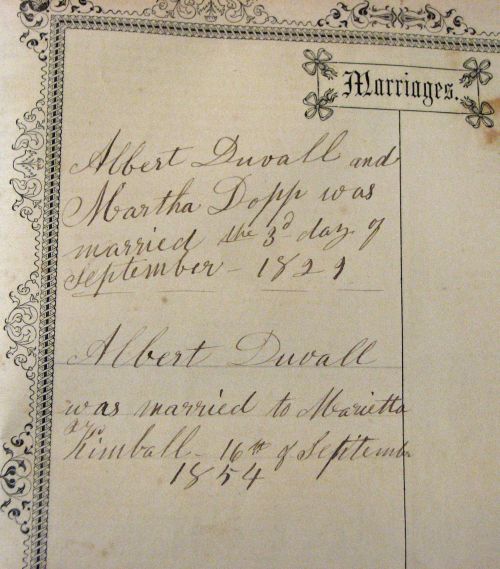 Marriages.
Albert Duvall and
Martha Dopp was
married the 3d day of
September - 1829
Albert Duvall
was married to Marietta
Kimball - 16th of Septemb
1854